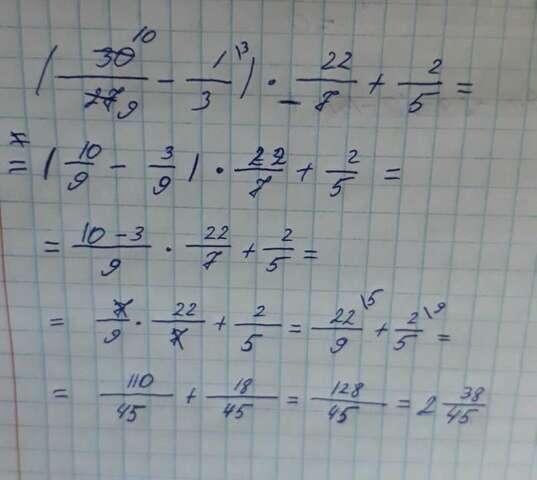 (30/27 10/9 - 1/3 \3) · 22/7 + 2/5 =
= (10/9 - 3/9) · 22/7 + 2/5 =
= (10-3)/9 · 22/7 + 2/5 =
= 7/9 · 22/7 + 2/5 = 22/9 \5 + 2/5 \9 =
= 110/45 + 18/45 = 128/45 = 2 38/45